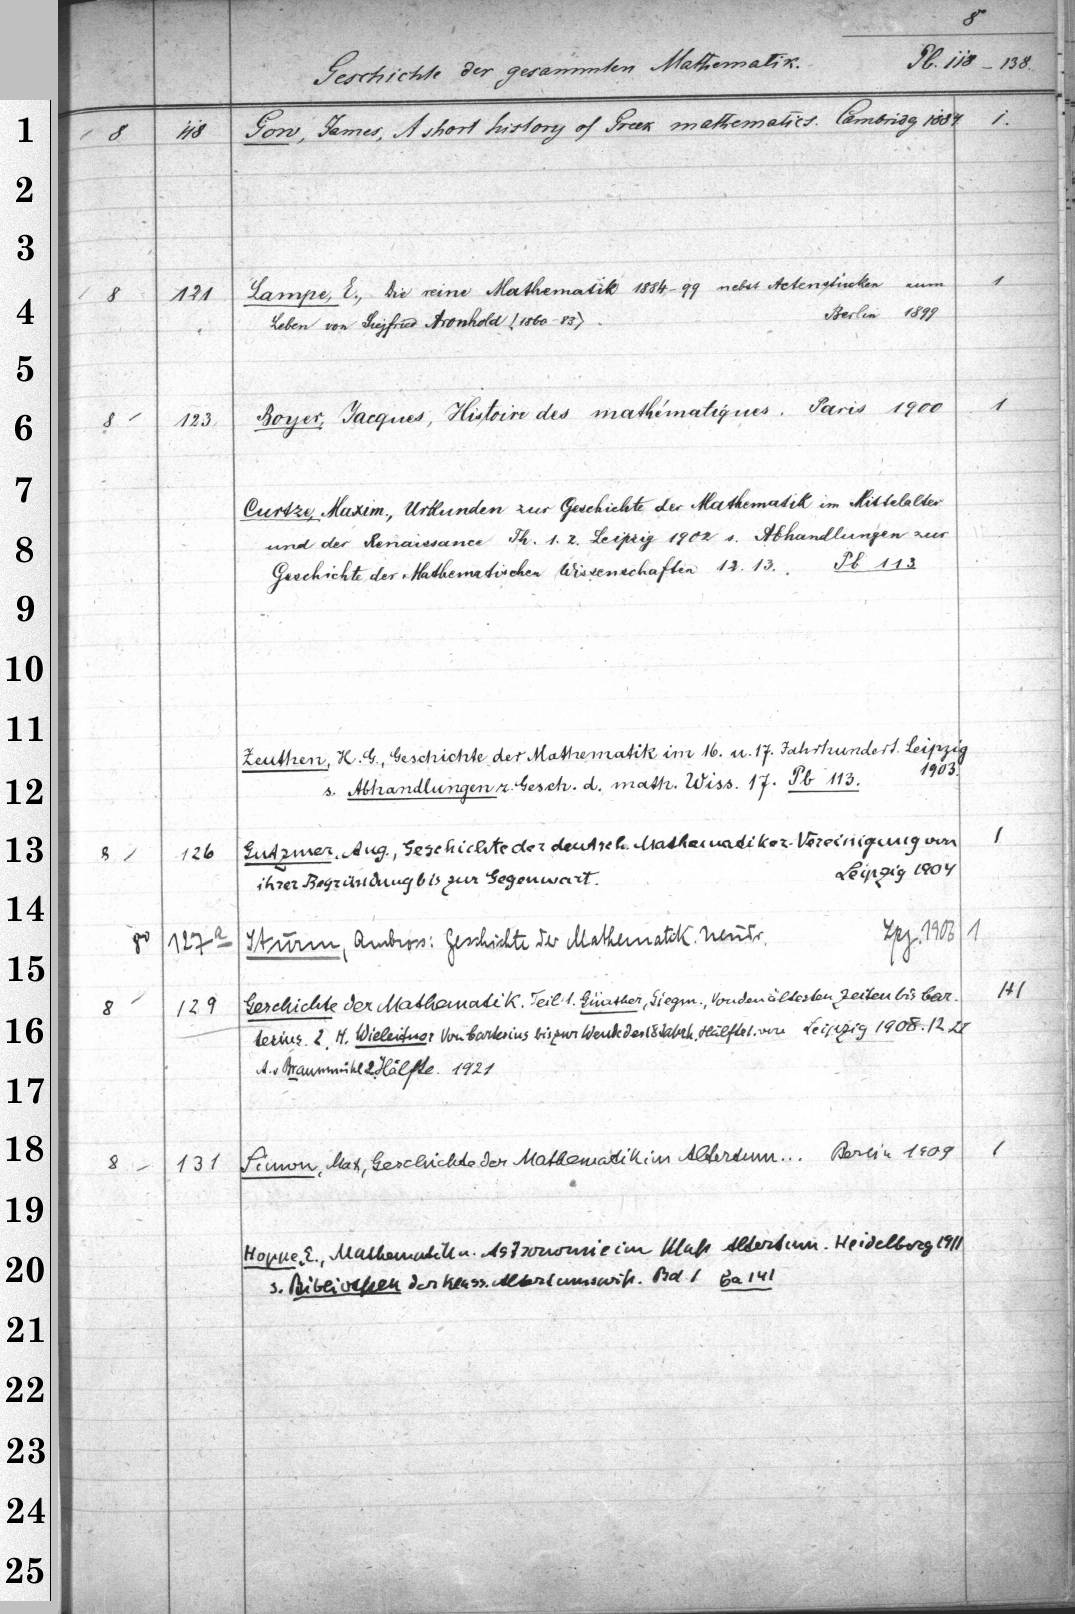 8
Geschichte der gesammten Mathematik. Pb. 118 - 138.
1 8 118 Gow, James, A short history of Greek mathematics. Cambridg 1884 1.
2
3
8 121 Lampe, E., Die reine Mathematik 1884-99 nebst Actenstücken zum 1
4 Leben von Siegfried Aronhold (1860-83). Berlin 1899
5
6 8 123. Boyer, Jacques, Histoire des mathématiques. Paris 1900 1
7 Curtze, Maxim., Urkunden zur Geschichte der Mathematik im Mittelalter
8 und der Renaissance Th. 1. 2. Leipzig 1902 s. Abhandlungen zur
Geschichte der Mathematischen Wissenschaften 12. 13. Pb 113
9
10
11
Zeuthen, H. G., Geschichte der Mathematik im 16. u. 17. Jahrhundert. Leipzig
12 s. Abhandlungen z. Gesch. d. math. Wiss. 17. Pb 113. 1903.
13 8 126 Gutzmer, Aug., Geschichte der deutsch. Mathematiker-Vereinigung von 1
ihrer Begründung bis zur Gegenwart. Leipzig 1904
14
8° 127a Sturm, Ambros: Geschichte der Mathematik. Neudr. Lpz. 1906 1
15
8 129 Geschichte der Mathematik. Teil 1. Günther, Siegm., Von den ältesten Zeiten bis Car- 1+1
16 tesius. 2. H. Wieleitner Von Cartesius bis zur Wende des 18 Jahrh. Hälfte 1. von Leipzig 1908.
A. v Braunmühl 2. Hälfte. 1921
17
18 8 131 Simon, Max, Geschichte der Mathematik im Altertum... Berlin 1909 1
19
Hoppe, E., Mathematik u. Astronomie im klass Altertum. Heidelberg 1911
20 s. Bibliothek der klass. Altertumswiss. Bd. 1 Ea 141
21
22
23
24
25